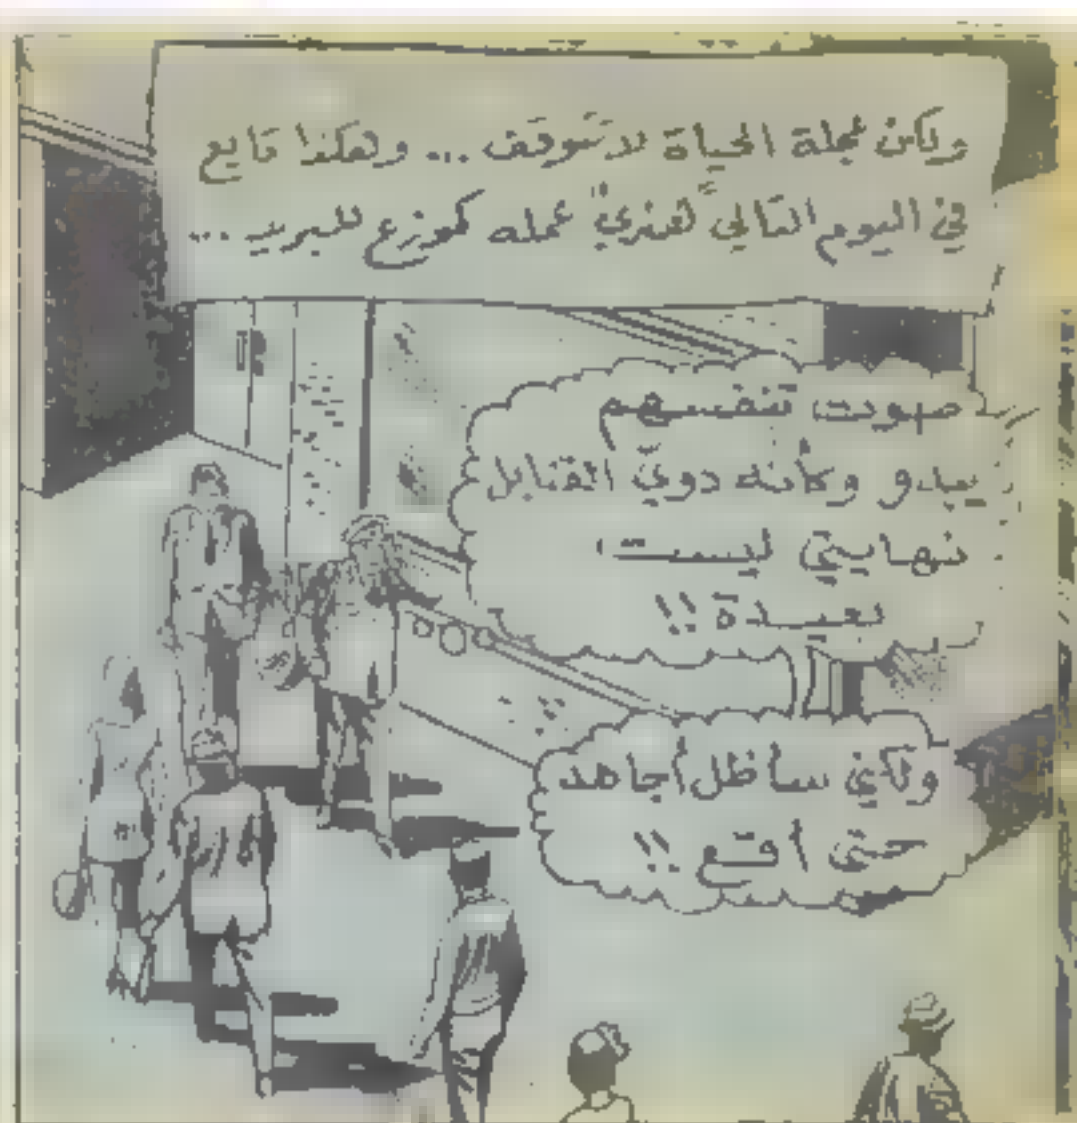 ولكن عجلة الحياة لا تتوقف ... وهكذا تابع
في اليوم التالي "هنري" عمله كموزع للبريد ...
صوت تنفسهم
يبدو وكأنه دويّ القنابل
نهايتي ليست
بعيدة !!
ولكني سأظل أجاهد
حتى أقع !!